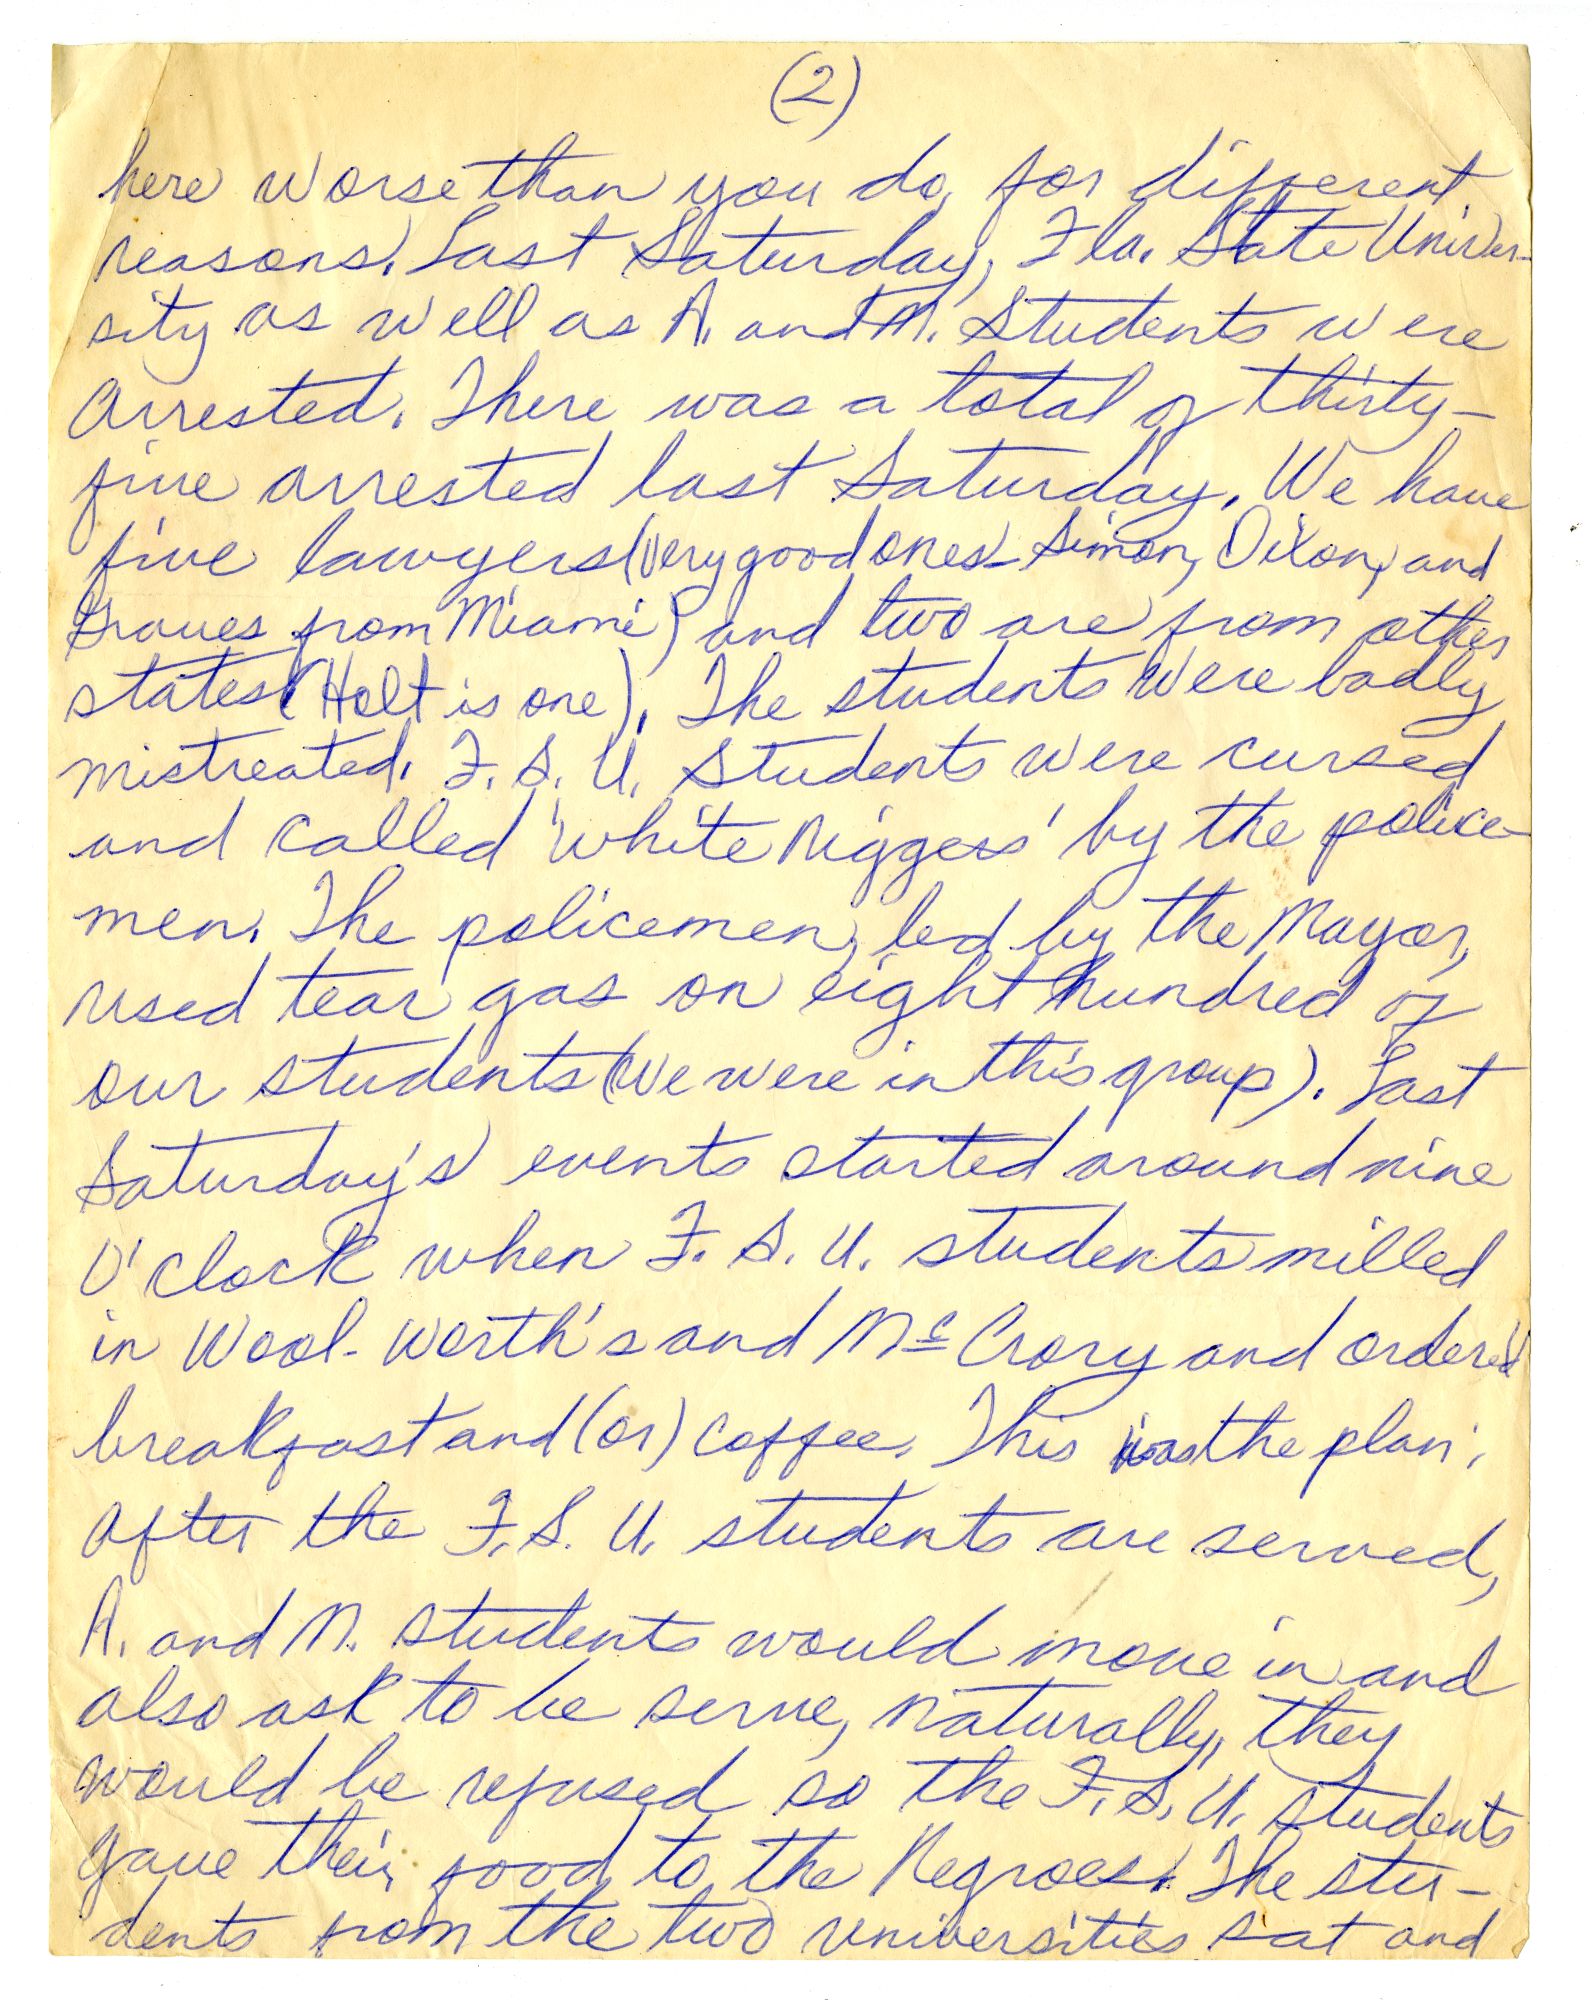 (2)
here worse than you do, for different
reasons. Last Saturday, Fla. State Univer-
sity as well as A. and M. Students were
arrested. There was a total of thirty-
five arrested last Saturday. We have
five lawyers (very good ones - Simon, Dixon, and
Graves from Miami) and two are from other
states (Holt is one). The students were badly
mistreated. F. S. U. Students were cursed
and called 'white niggers' by the police-
men. The policemen, led by the Mayor,
used tear gas on eight hundred of
our students (We were in this group). Last
Saturday's events started around nine
O'clock when F. S. U. students milled
in Wool-worth's and McCrory and ordered
breakfast and (or) coffee. This was the plan;
after the F. S. U. students are served,
A. and M. students would move in and
also ask to be serve, naturally, they
would be refused so the F. S. U. students
gave their food to the Negroes. The stu-
dents from the two universities sat and